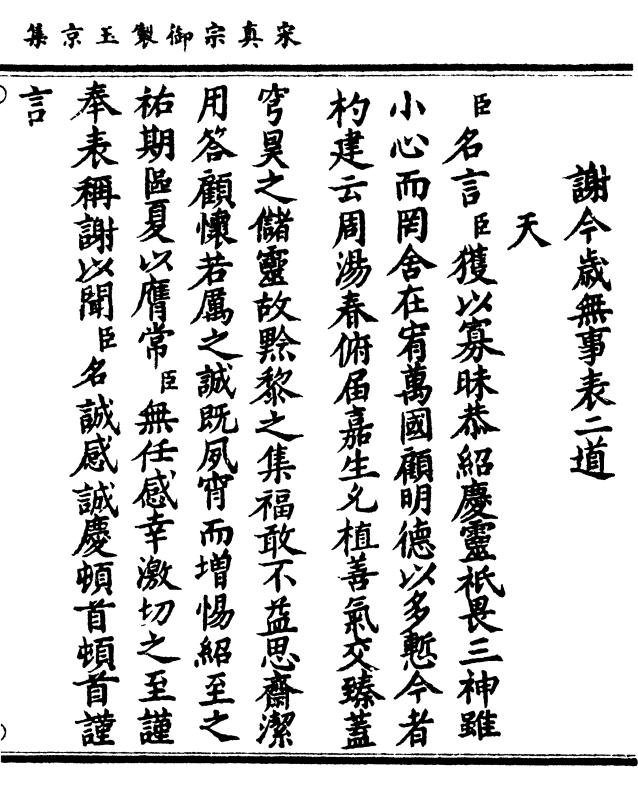 宋真宗御製玉京集
謝今歲無事表二道
天
臣名言臣獲以寡昧恭紹慶靈祇畏三神雖
小心而罔舍在宥萬國顧明德以多慙今者
杓建云周湯春俯届嘉生允植善氣交臻蓋
穹昊之儲靈故黔黎之集福敢不益思齋潔
用答顧懷若厲之誠既夙宵而增惕紹至之
祐期區夏以膺常臣無任感幸激切之至謹
奉表稱謝以聞臣名誠感誠慶頓首頓首謹
言